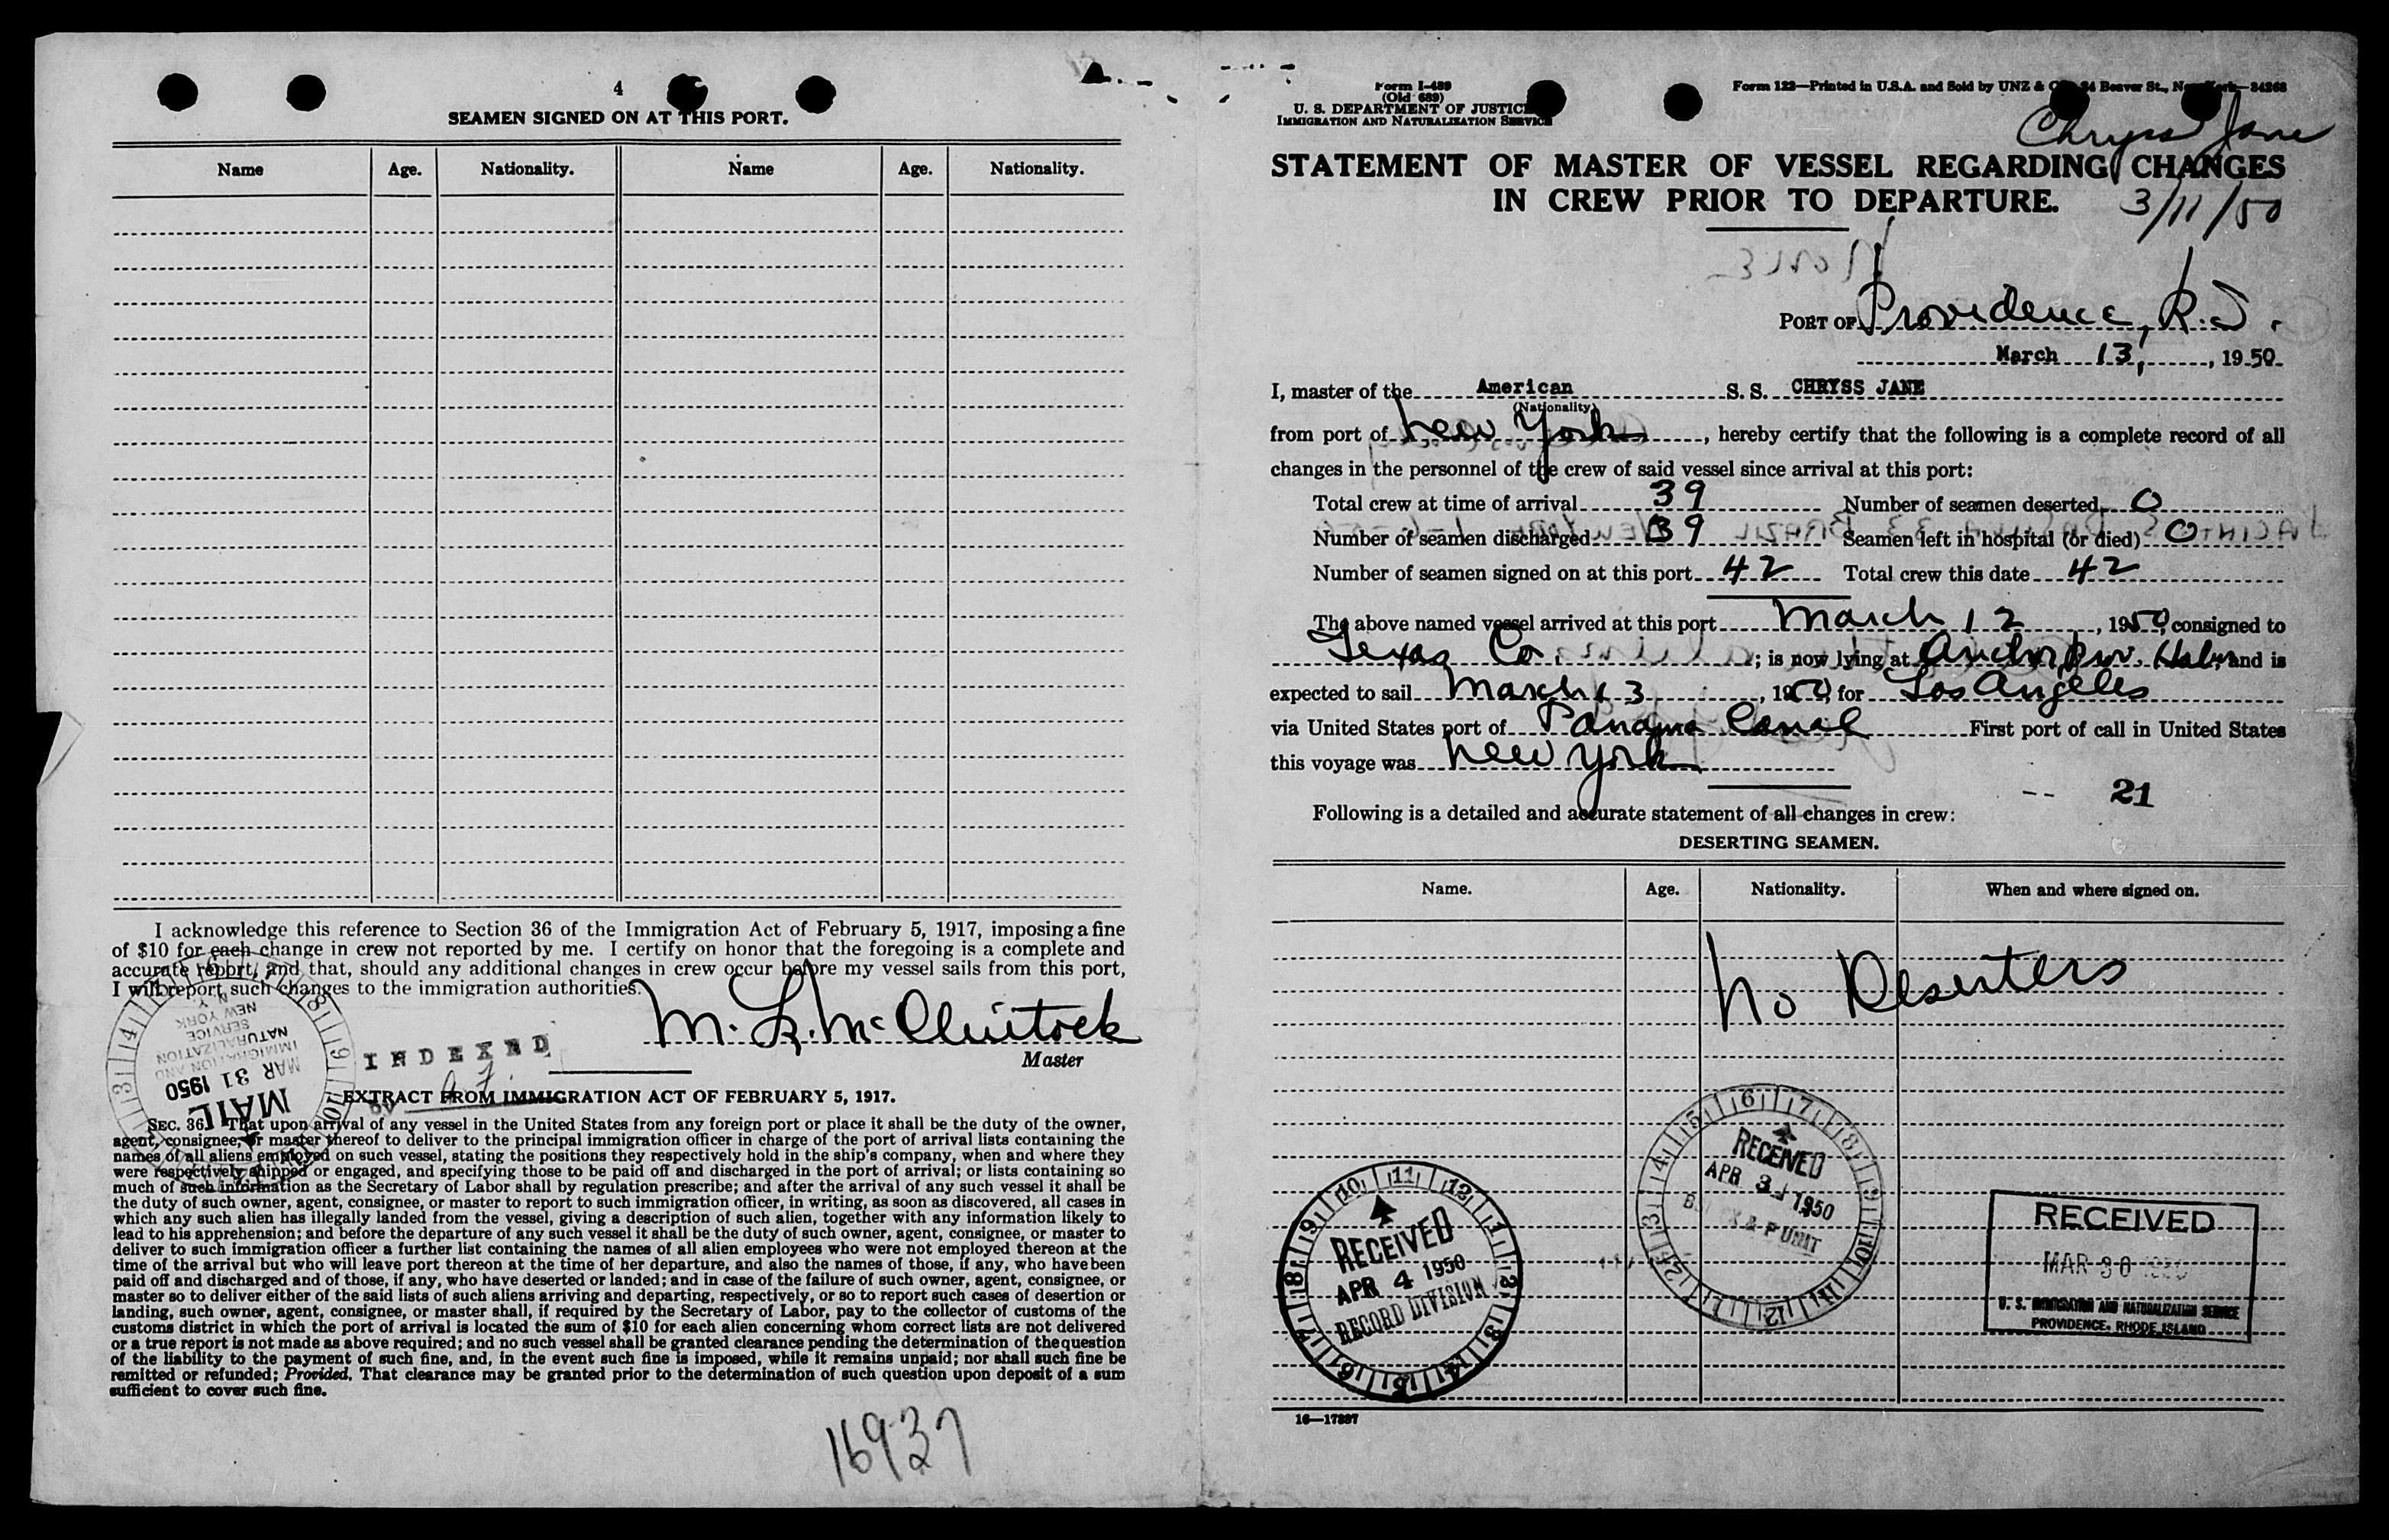 4
SEAMEN SIGNED ON AT THIS PORT.
Name Age. Nationality. Name Age. Nationality.
I acknowledge this reference to Section 36 of the Immigration Act of February 5, 1917, imposing a fine
of $10 for each change in crew not reported by me. I certify on honor that the foregoing is a complete and
accurate report, and that, should any additional changes in crew occur before my vessel sails from this port,
I will report such changes to the immigration authorities.
M. L. McClintock
Master
INDEXED
MAIL
MAR 31 1950
IMMIGRATION AND
NATURALIZATION
SERVICE
NEW YORK
N.Y.
EXTRACT FROM IMMIGRATION ACT OF FEBRUARY 5, 1917.
SEC. 36. That upon arrival of any vessel in the United States from any foreign port or place it shall be the duty of the owner,
agent, consignee, or master thereof to deliver to the principal immigration officer in charge of the port of arrival lists containing the
names of all aliens employed on such vessel, stating the positions they respectively hold in the ship's company, when and where they
were respectively shipped or engaged, and specifying those to be paid off and discharged in the port of arrival; or lists containing so
much of such information as the Secretary of Labor shall by regulation prescribe; and after the arrival of any such vessel it shall be
the duty of such owner, agent, consignee, or master to report to such immigration officer, in writing, as soon as discovered, all cases in
which any such alien has illegally landed from the vessel, giving a description of such alien, together with any information likely to
lead to his apprehension; and before the departure of any such vessel it shall be the duty of such owner, agent, consignee, or master to
deliver to such immigration officer a further list containing the names of all alien employees who were not employed thereon at the
time of the arrival but who will leave port thereon at the time of her departure, and also the names of those, if any, who have been
paid off and discharged and of those, if any, who have deserted or landed; and in case of the failure of such owner, agent, consignee, or
master so to deliver either of the said lists of such aliens arriving and departing, respectively, or so to report such cases of desertion or
landing, such owner, agent, consignee, or master shall, if required by the Secretary of Labor, pay to the collector of customs of the
customs district in which the port of arrival is located the sum of $10 for each alien concerning whom correct lists are not delivered
or a true report is not made as above required; and no such vessel shall be granted clearance pending the determination of the question
of the liability to the payment of such fine, and, in the event such fine is imposed, while it remains unpaid; nor shall such fine be
remitted or refunded; Provided, That clearance may be granted prior to the determination of such question upon deposit of a sum
sufficient to cover such fine.
16937
Form I-489
(Old 689)
U. S. DEPARTMENT OF JUSTICE
IMMIGRATION AND NATURALIZATION SERVICE
Form 122—Printed in U.S.A. and Sold by UNZ & Co., 24 Beaver St., New York—34268
Chryss Jane
STATEMENT OF MASTER OF VESSEL REGARDING CHANGES
IN CREW PRIOR TO DEPARTURE.
3/11/50
PORT OF Providence, R.I.
March 13, 1950
I, master of the American S. S. CHRYSS JANE
(Nationality)
from port of New York, hereby certify that the following is a complete record of all
changes in the personnel of the crew of said vessel since arrival at this port:
Total crew at time of arrival 39 Number of seamen deserted 0
Number of seamen discharged 39 Seamen left in hospital (or died) 0
Number of seamen signed on at this port 42 Total crew this date 42
The above named vessel arrived at this port March 12, 1950, consigned to
Texas Co.; is now lying at and is
expected to sail March 13, 1950, for Los Angeles
via United States port of Panama Canal First port of call in United States
this voyage was New York
-- 21
Following is a detailed and accurate statement of all changes in crew:
DESERTING SEAMEN.
Name. Age. Nationality. When and where signed on.
No Deserters
RECEIVED
APR 4 1950
RECORD DIVISION
RECEIVED
APR 3 1950
& P UNIT
RECEIVED
MAR 30 1950
U. S. IMMIGRATION AND NATURALIZATION SERVICE
PROVIDENCE, RHODE ISLAND
16—17897